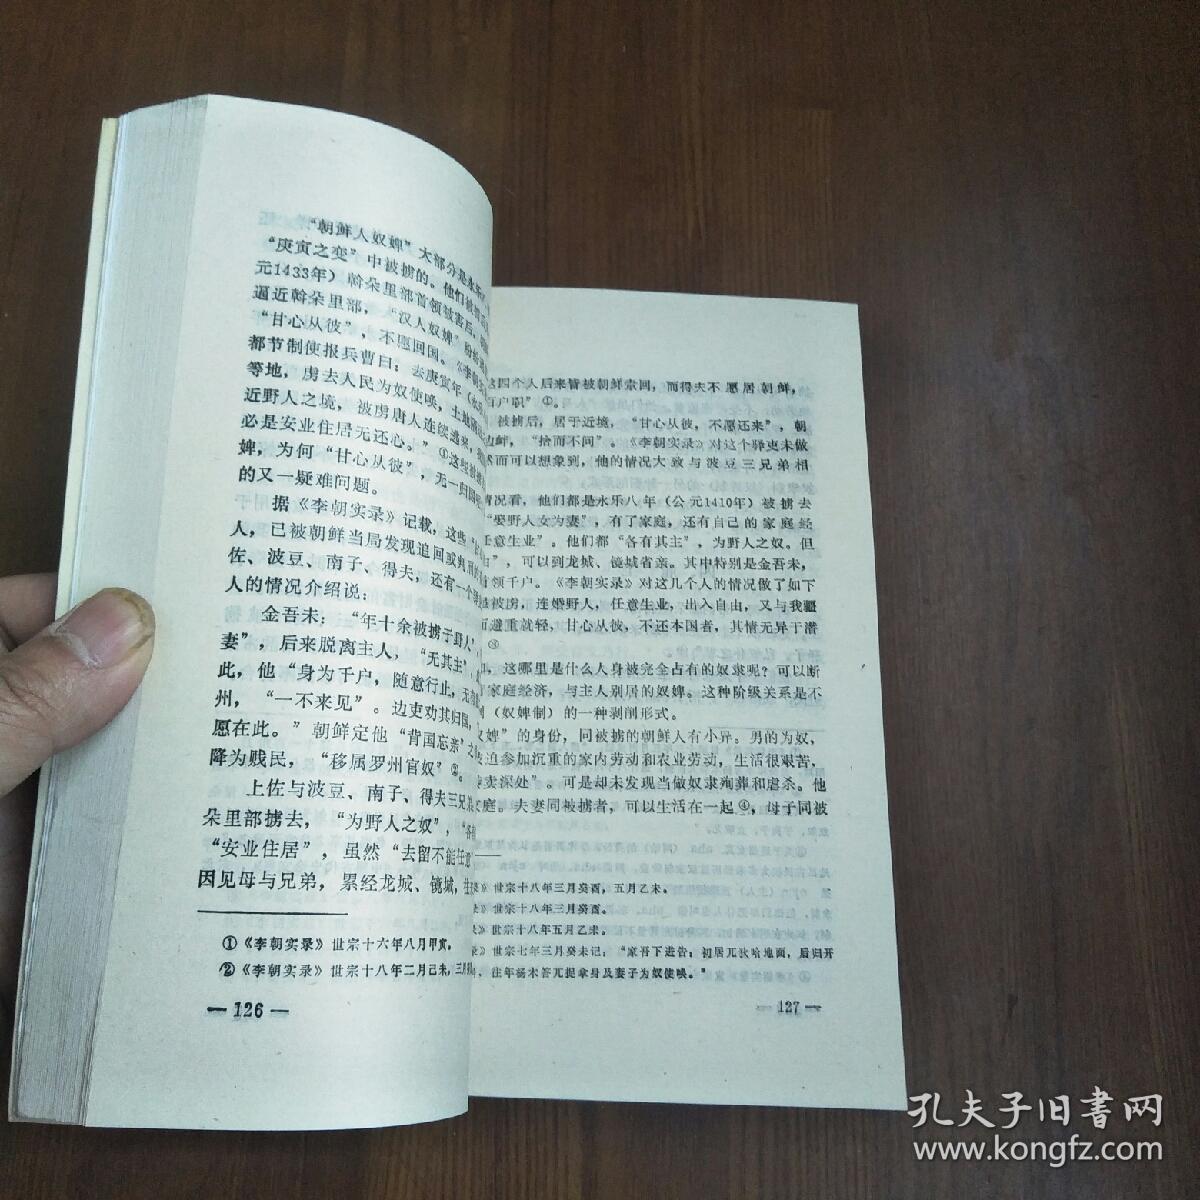 “朝鲜人奴婢”大部分是永乐
“庚寅之变”中被掳的。他们被
元1433年）斡朵里部首领被害后，
逼近斡朵里部，“汉人奴婢”纷纷
“甘心从彼”，不愿回国。《李朝
都节制使报兵曹曰：去庚寅年
等地，虏去人民为奴使唤，土地
近野人之境，被虏唐人连续逃来，
必是安业住居无还心。”①这些被掳
婢，为何“甘心从彼”，无一归国
的又一疑难问题。
据《李朝实录》记载，这些“
人，已被朝鲜当局发现追回或判
佐、波豆、南子、得夫，还有一个
人的情况介绍说：
金吾未：“年十余被掳于野人”，
妻”，后来脱离主人，“无其主”，
此，他“身为千户，随意行止，无
州，“一不来见”。边吏劝其归国，
愿在此。”朝鲜定他“背国忘亲”之
降为贱民，“移属罗州官奴”②。
上佐与波豆、南子、得夫三兄弟
朵里部掳去，“为野人之奴”，“各有
“安业住居”，虽然“去留不能任意
因见母与兄弟，累经龙城、镜城，往
①《李朝实录》世宗十六年八月甲寅，
②《李朝实录》世宗十八年二月己未，三月
— 126 —
这四个人后来皆被朝鲜索回，而得夫不愿居朝鲜，
百户职”①。
被掳后，居于近境，“甘心从彼，不愿还来”，朝
边衅，“捨而不问”。《李朝实录》对这个驿吏未做
然而可以想象到，他的情况大致与波豆三兄弟相
情况看，他们都是永乐八年（公元1410年）被掳去
“娶野人女为妻”，有了家庭，还有自己的家庭经
任意生业”。他们都“各有其主”，为野人之奴。但
由”，可以到龙城、镜城省亲。其中特别是金吾未，
首领千户。《李朝实录》对这几个人的情况做了如下
被虏，连婚野人，任意生业，出入自由，又与我疆
而避重就轻，甘心从彼，不还本国者，其情无异于潜
③
，这哪里是什么人身被完全占有的奴隶呢？可以断
家庭经济，与主人别居的奴婢。这种阶级关系是不
制（奴婢制）的一种剥削形式。
奴婢”的身份，同被掳的朝鲜人有小异。男的为奴，
被迫参加沉重的家内劳动和农业劳动，生活很艰苦，
卖深处”。可是却未发现当做奴隶殉葬和虐杀。他
家庭。夫妻同被掳者，可以生活在一起④，母子同被
录》世宗十八年三月癸酉，五月乙未。
录》世宗十八年三月癸酉。
录》世宗十八年五月乙未。
录》世宗七年三月癸未记：“家吾下进告：初居兀狄哈地面，后归开
，往年杨木答兀捉拿身及妻子为奴使唤。”
— 127 —
孔夫子旧书网
www.kongfz.com